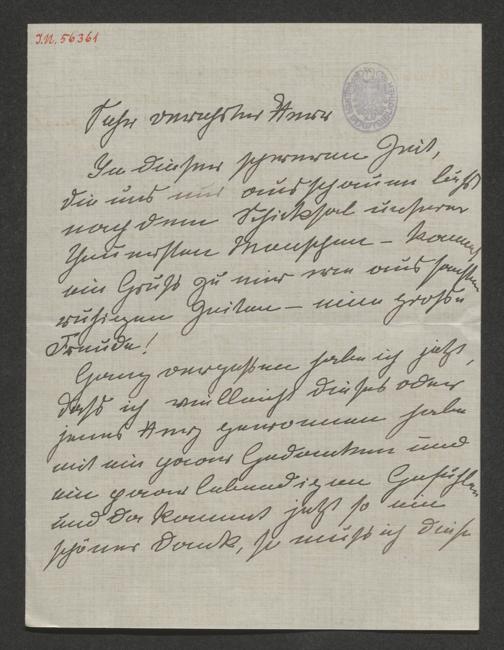 I.N. 56361
Sehr verehrter Herr
In dieser schweren Zeit,
die uns nur ausschauen läßt
nach dem Schicksal unserer
theuersten Menschen – kommt
ein Gruß zu mir wie aus sanften
ruhigen Zeiten – eine große
Freude!
Ganz vergessen habe ich jetzt,
daß ich vielleicht dieses oder
jenes Herz gewonnen habe
mit ein paar Gedanken und
ein paar lebendigen Gefühlen
und da kommt jetzt so ein
schöner Dank, so muß ich diese